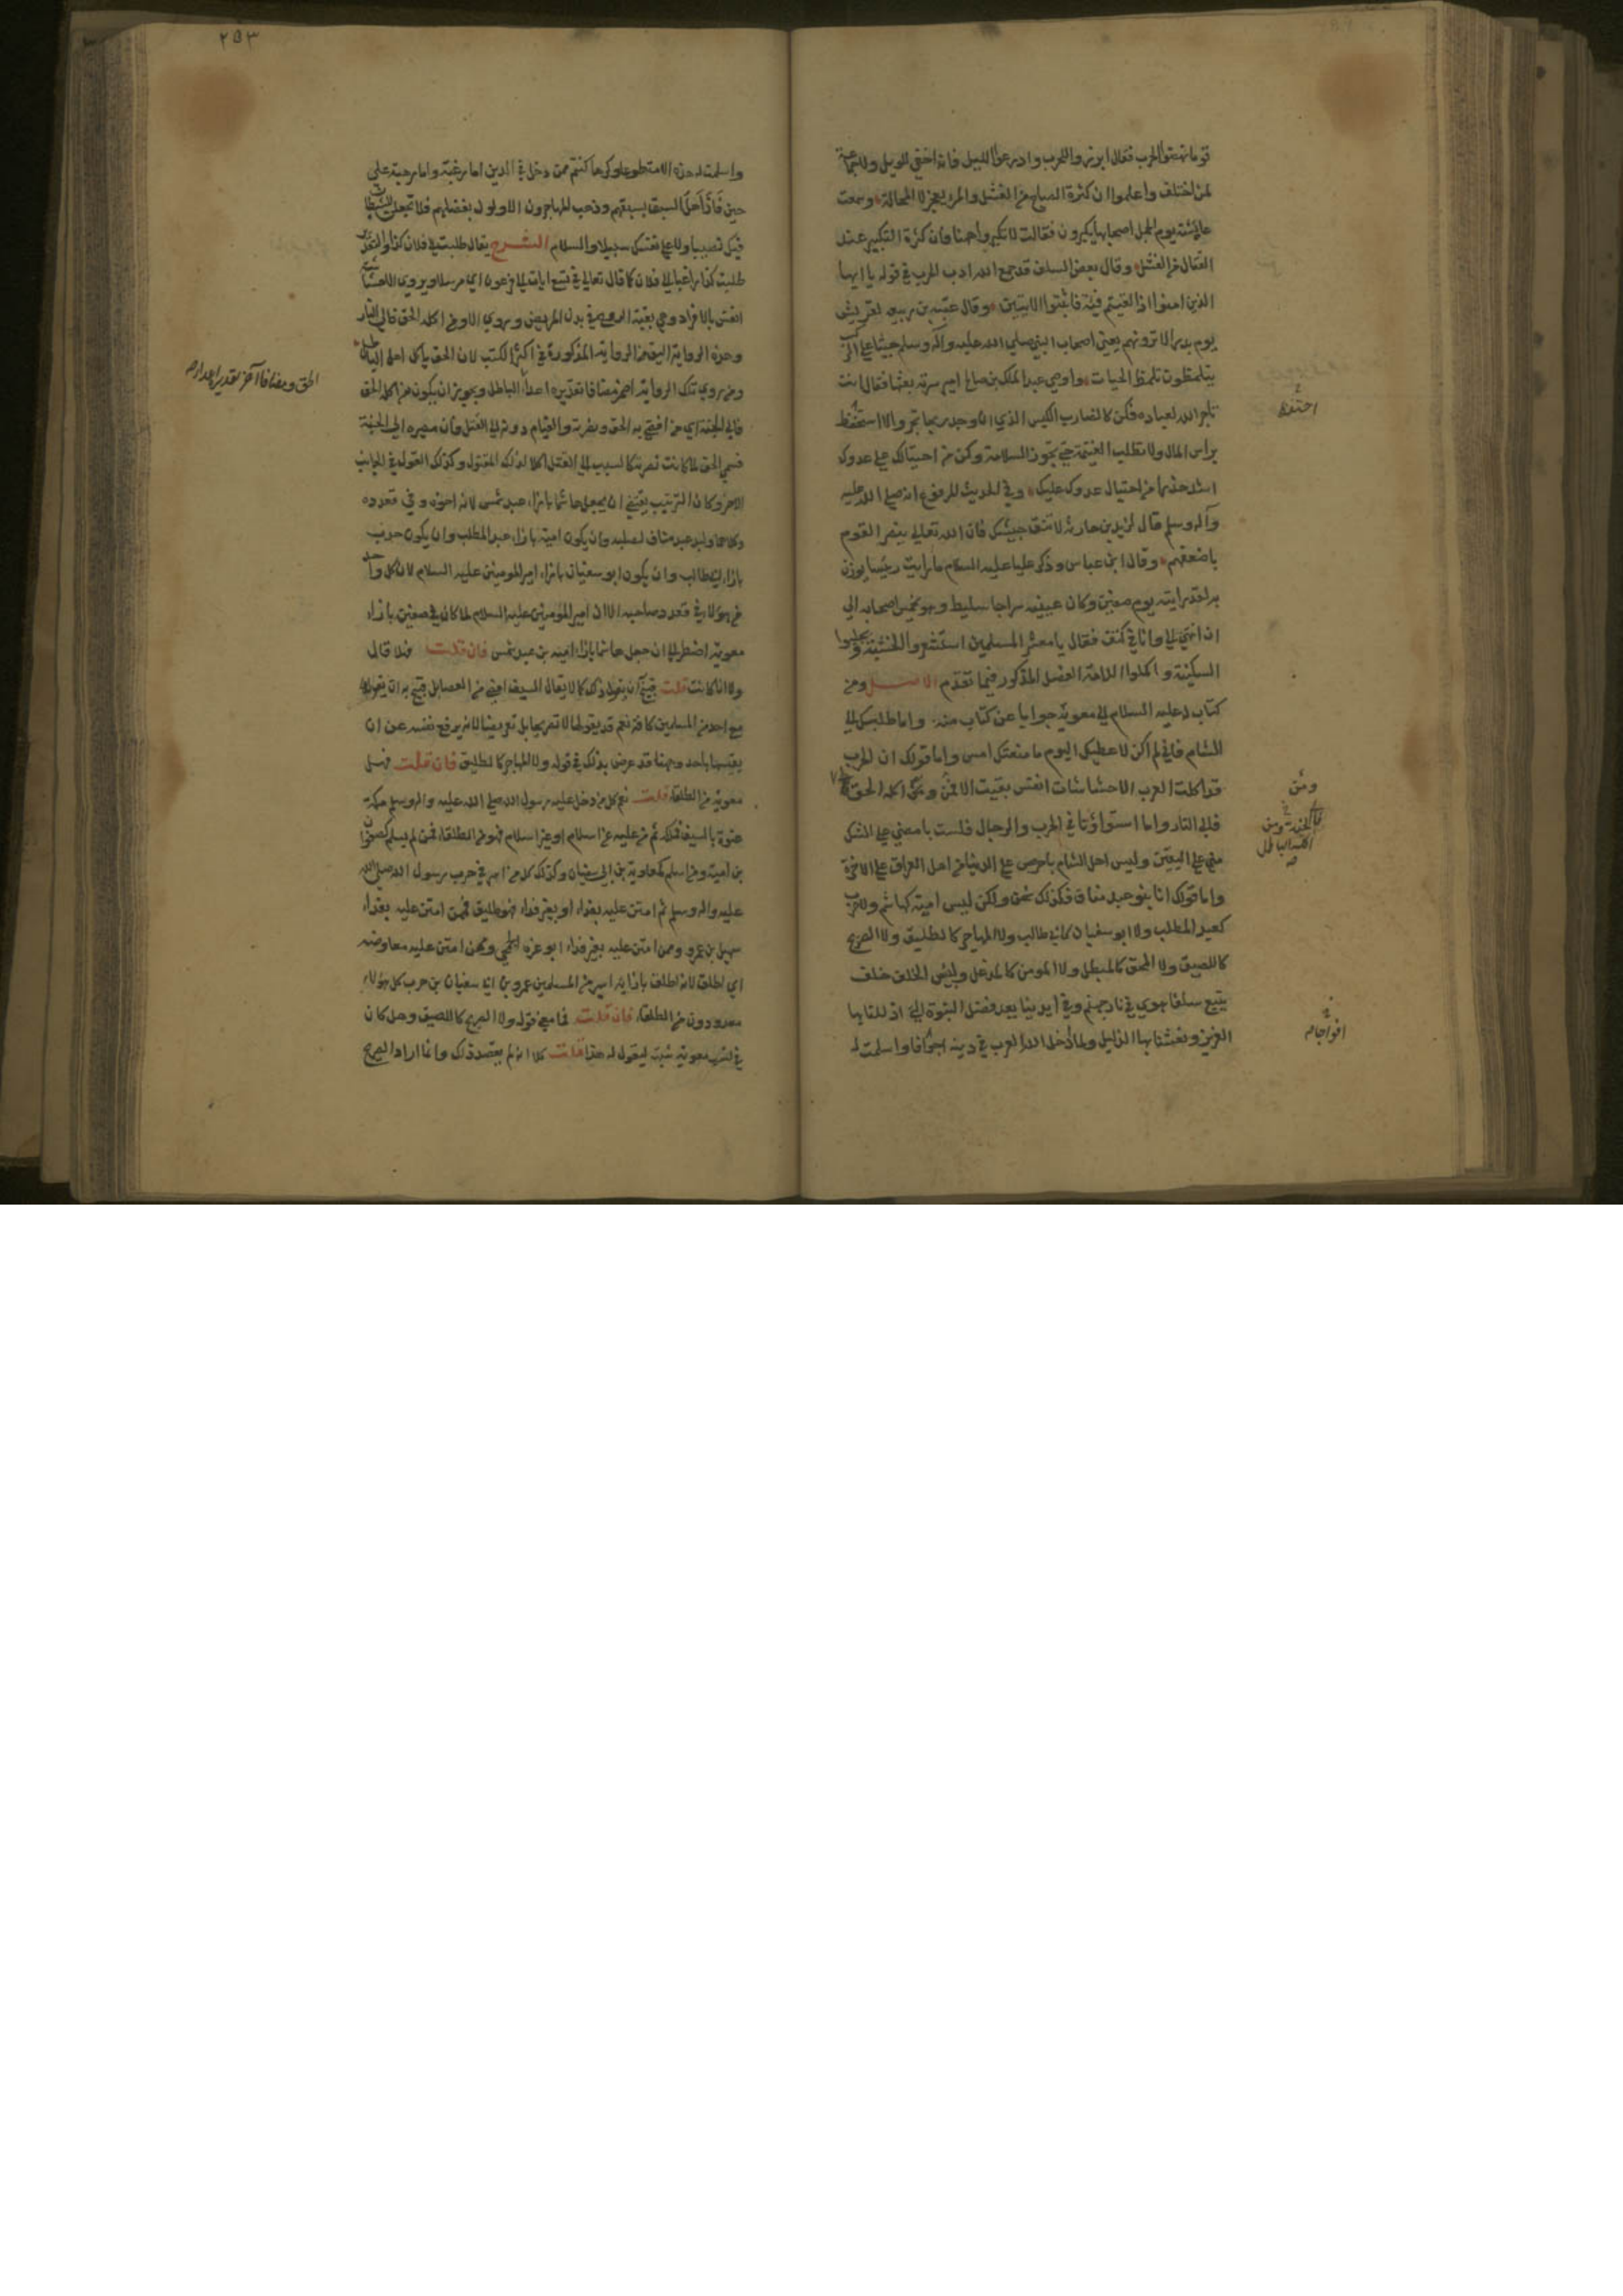 قوما نهبتموا الحرب فقال ابرزه واللحرب وادرعوا الليل فانه اخفي للويل ولا جماعة
لمن اختلف واعلموا ان كثرة الصياح من الفشل والمرء يعجز لا المحالة وسمعت
عائشة يوم الجمل اصحابها يكبرون فقالت لا تكبروا ههنا فان كثرة التكبير عند
القتال من الفشل وقال بعض السلف قد جمع الله ادب الحرب في قوله يا ايها
الذين امنوا اذا لقيتم فئة فاثبتوا الآيتين وقال عتبه بن ربيعه لقريش
يوم بدر الا ترونهم يعني اصحاب النبي صلى الله عليه وآله وسلم جثيا على الركب
يتلمظون تلمظ الحيات واوصى عبد الملك بن صالح امير سرية بعثها فقال انت
تاجر الله لعباده فكن كالمضارب الكيس الذي ان وجد ربحا تجر والا استحفظ
براس المال ولا تطلب الغنيمة حتى تحوز السلامة وكن من احتيالك على عدوك
اشد حذرا من احتيال عدوك عليك وفي الحديث المرفوع انه صلى الله عليه
وآله وسلم قال لزيد بن حارثة لا تشق جيشك فان الله تعالى ينصر القوم
باضعفهم وقال ابن عباس وذكر عليا عليه السلام ما رايت رئيسا يوزن
به لقد رايته يوم صفين وكان عينيه سراجا سليط وهو يحمس اصحابه الى
ان انتهى الي وانا في كنف فقال يا معشر المسلمين استشعروا الخشية وتجلببوا
السكينة واكملوا اللامة الفصل المذكور فيما تقدم الاصل ومن
كتاب له عليه السلام الى معوية جوابا عن كتاب منه واما طلبك الي
الشام فاني لم اكن لاعطيك اليوم ما منعتك امس واما قولك ان الحرب
قد اكلت العرب الا حشاشات انفس بقيت الا فمن اكله الحق
فالى النار واما استواؤنا في الحرب والرجال فلست بامضى على الشك
مني على اليقين وليس اهل الشام باحرص على الدنيا من اهل العراق على الاخرة
واما قولك انا بنو عبد مناف فكذلك نحن ولكن ليس امية كهاشم ولا حرب
كعبد المطلب ولا ابو سفيان كابي طالب ولا المهاجر كالطليق ولا الصريح
كاللصيق ولا المحق كالمبطل ولا المومن كالمدغل ولبئس الخلف خلف
يتبع سلفا هوي في نار جهنم وفي ايدينا بعد فضل النبوة التي اذللنا بها
العزيز ونعشنا بها الذليل ولما ادخل الله العرب في دينه افواجا واسلمت له
احتفظ
ومن
فالى الجنة ومن
اكله الباطل
صح
افواجا
٢٥٣
واسلمت له هذه الامة طوعا وكرها كنتم ممن دخل في الدين اما رغبة واما رهبة على
حين فاز اهل السبق بسبقهم وذهب المهاجرون الاولون بفضلهم فلا تجعلن للشيطان
فيك نصيبا ولا على نفسك سبيلا والسلام الشرح يقال طلبت الى فلان كذا والتقدير
طلبت كذا راغبا الى فلان كما قال تعالى في تسع ايات الى فرعون اي مرسلا ويروى الا حشاشة
انفس بالافراد وهي بقية الروح في بدن المريض ويروى الا ومن اكله الحق فالى النار
وهذه الرواية اليق من الرواية المذكورة في اكثر الكتب لان الحق ياكل اهل الباطل
ومن روى تلك الرواية اضمر مضافا تقديره اعداء الباطل ويجوز ان يكون من اكله الحق
فالى الجنة اي من افضى به الحق ونصرته والقيام دونه الى القتل فان مصيره الى الجنة
فسمى الحق لما كانت نصرته كالسبب الى القتل اكلا لذلك المقتول وكذلك القول في الجانب
الاخر وكان الترتيب يقتضي ان يجعل هاشما بازاء عبد شمس لانه اخوه وفي قعدده
وكلاهما ولد عبد مناف لصلبه وان يكون امية بازاء عبد المطلب وان يكون حرب
بازاء ابي طالب وان يكون ابو سفيان بازاء امير المومنين عليه السلام لان كل واحد
من هؤلاء في قعدد صاحبه الا ان امير المومنين عليه السلام لما كان في صفين بازاء
معوية اضطر الى ان جعل هاشما بازاء اميه بن عبد شمس فان قلت فهلا قال
ولا انا كانت قلت قبيح ان يقول ذلك كما لا يقال السيف امضى من العصا بل قبيح به ان يقولها
مع احد من المسلمين كافة نعم قد يقولها لا تصريحا بل تعريضا لانه يرفع نفسه عن ان
يقيسها باحد وههنا قد عرض بذلك في قوله ولا المهاجر كالطليق فان قلت فهل
معوية من الطلقاء قلت نعم كل من دخل عليه رسول الله صلى الله عليه واله وسلم مكة
عنوة بالسيف فملكه ثم من عليه عن اسلام او غير اسلام فهو من الطلقاء فمن لم يسلم كصفوان
بن امية ومن اسلم كمعاوية بن ابي سفيان وكذلك كل من اسر في حرب رسول الله صلى الله
عليه واله وسلم ثم امتن عليه بفداء او بغير فداء فهو طليق فممن امتن عليه بفداء
سهيل بن عمرو وممن امتن عليه بغير فداء ابو عزه الجمحي وممن امتن عليه معاوضه
اي اطلق لانه اطلق بازايه اسير من المسلمين عمرو بن ابي سفيان بن حرب كل هؤلاء
معدودون من الطلقاء فان قلت فما معنى قوله ولا الصريح كاللصيق وهل كان
في نسب معوية شبهة ليقول له هذا قلت كلا انه لم يقصد ذلك وانما اراد الصريح
الحق ومضافا آخر تقديره اعداء